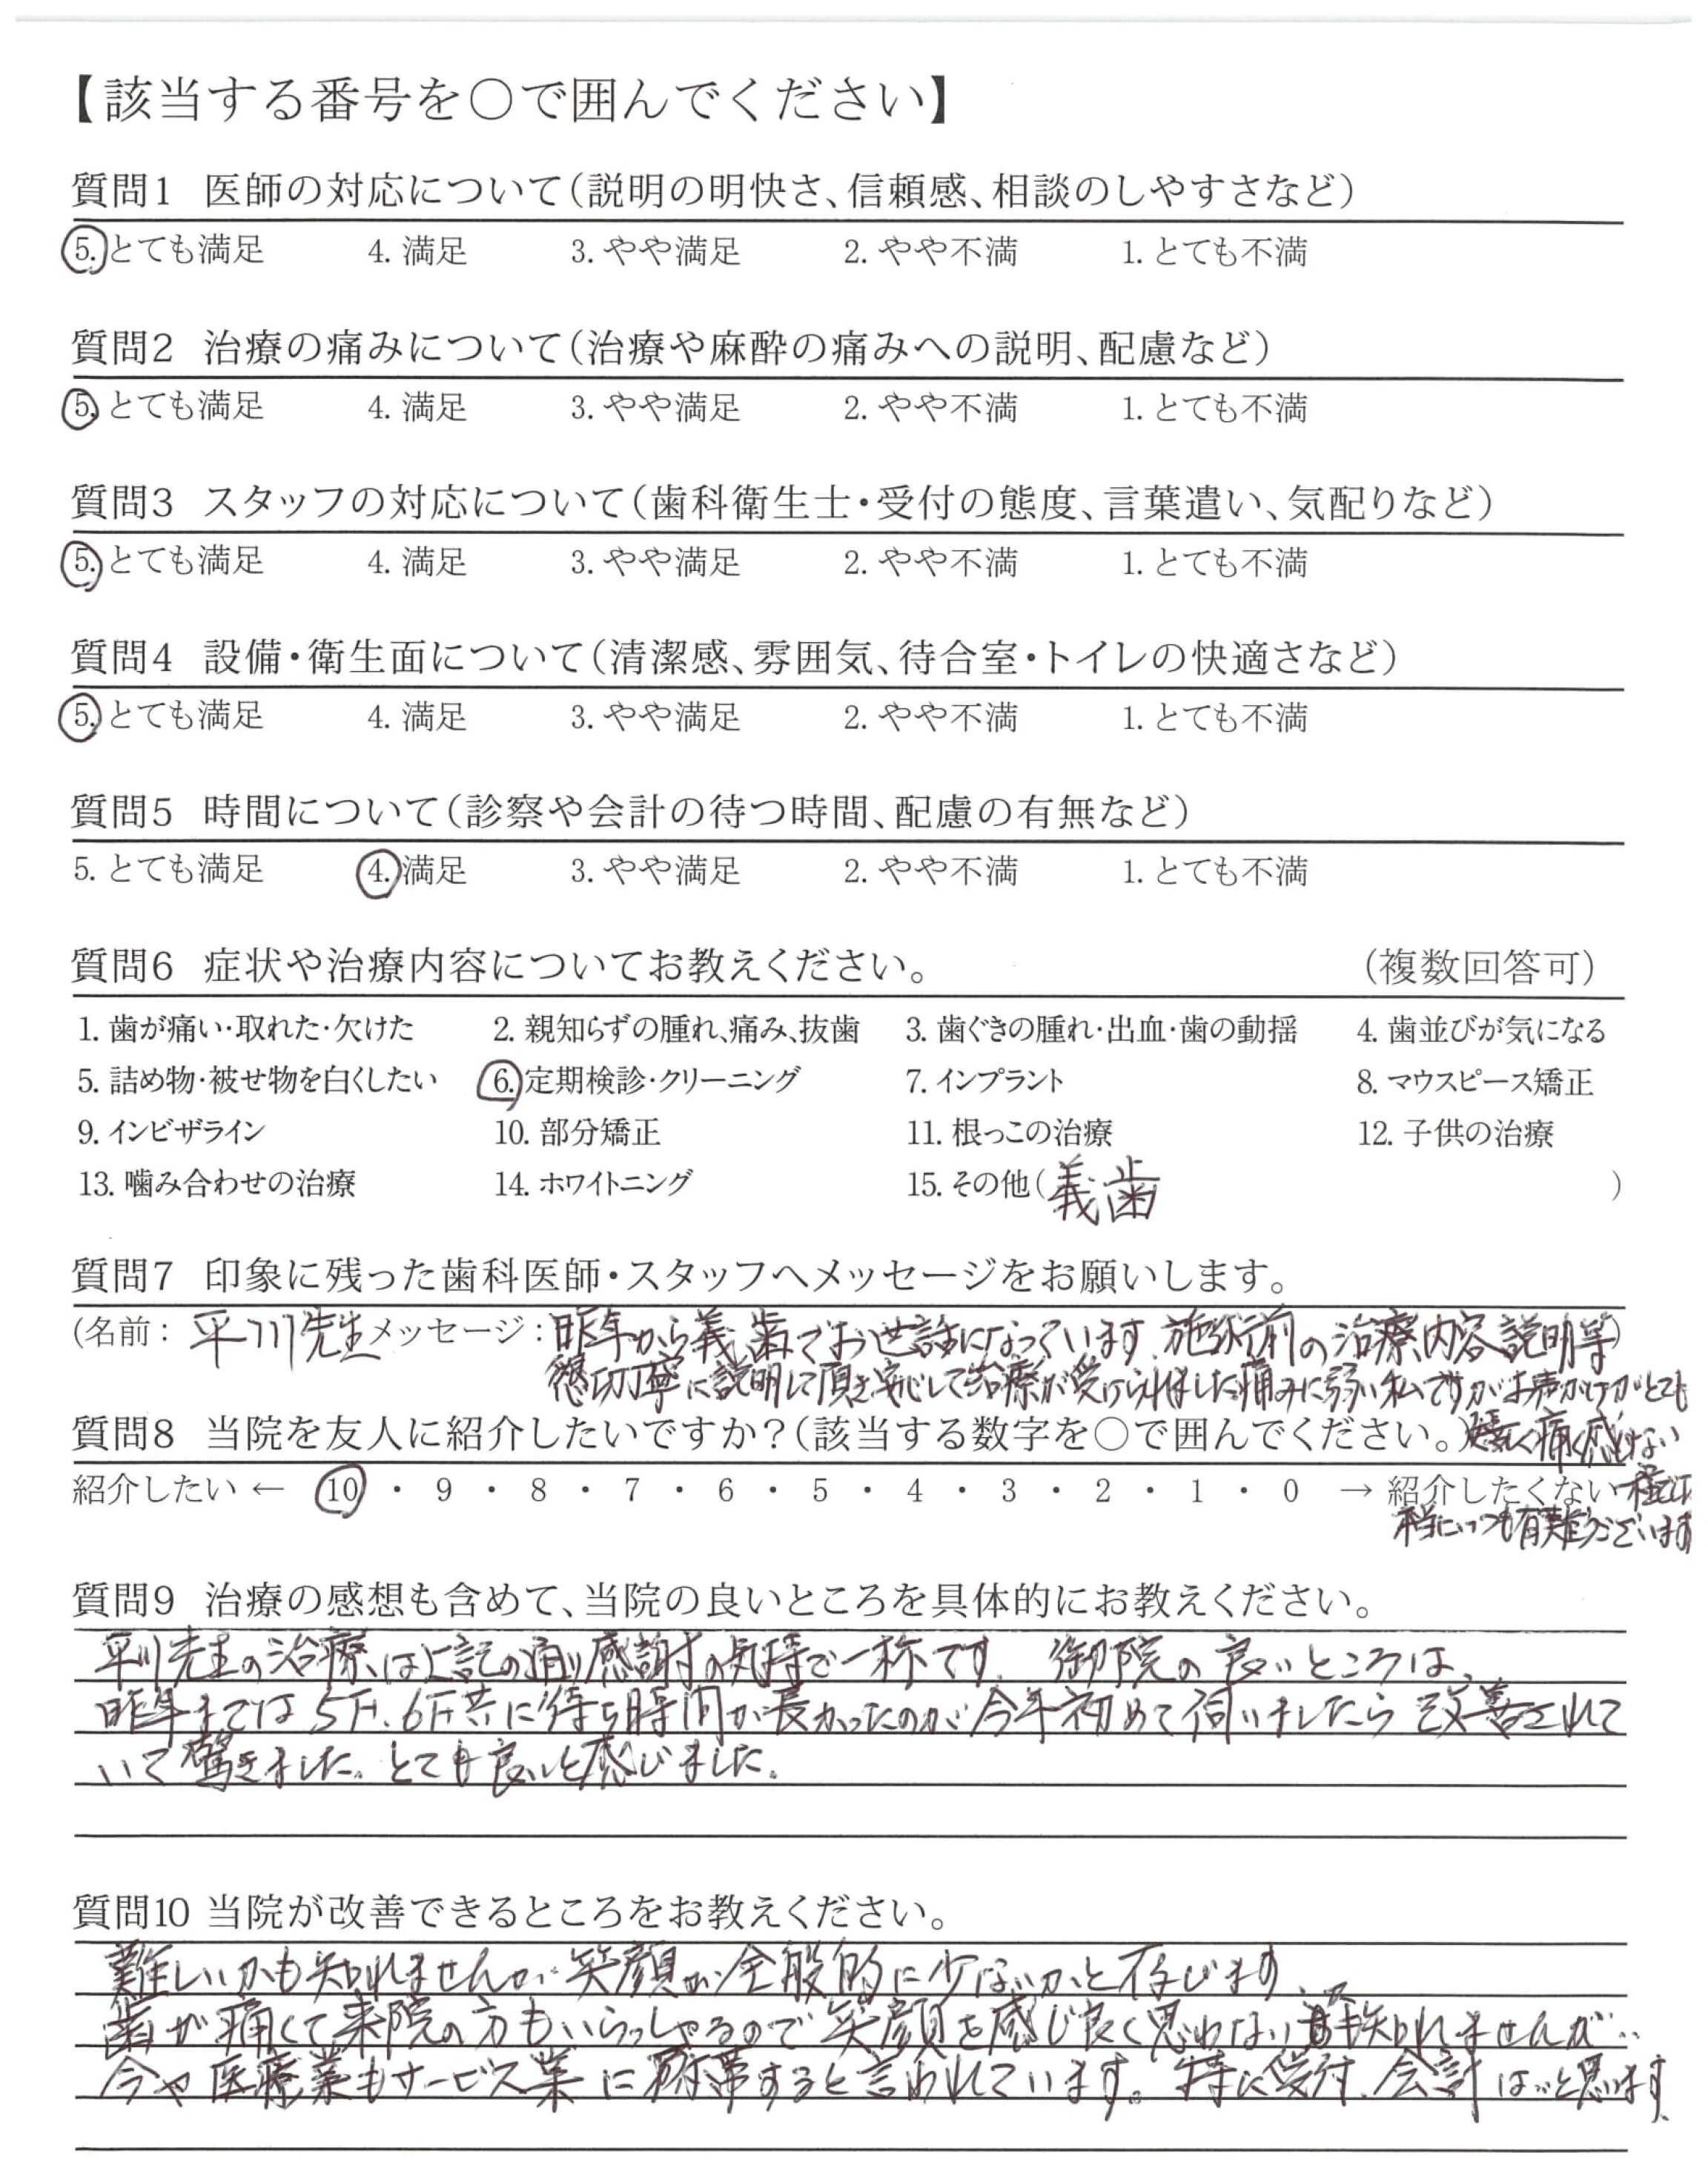 【該当する番号を〇で囲んでください】
質問1 医師の対応について(説明の明快さ、信頼感、相談のしやすさなど)
5. とても満足 4. 満足 3. やや満足 2. やや不満 1. とても不満
質問2 治療の痛みについて(治療や麻酔の痛みへの説明、配慮など)
5. とても満足 4. 満足 3. やや満足 2. やや不満 1. とても不満
質問3 スタッフの対応について(歯科衛生士・受付の態度、言葉遣い、気配りなど)
5. とても満足 4. 満足 3. やや満足 2. やや不満 1. とても不満
質問4 設備・衛生面について(清潔感、雰囲気、待合室・トイレの快適さなど)
5. とても満足 4. 満足 3. やや満足 2. やや不満 1. とても不満
質問5 時間について(診察や会計の待つ時間、配慮の有無など)
5. とても満足 4. 満足 3. やや満足 2. やや不満 1. とても不満
質問6 症状や治療内容についてお教えください。 (複数回答可)
1. 歯が痛い・取れた・欠けた 2. 親知らずの腫れ、痛み、抜歯 3. 歯ぐきの腫れ・出血・歯の動揺 4. 歯並びが気になる
5. 詰め物・被せ物を白くしたい 6. 定期検診・クリーニング 7. インプラント 8. マウスピース矯正
9. インビザライン 10. 部分矯正 11. 根っこの治療 12. 子供の治療
13. 噛み合わせの治療 14. ホワイトニング 15. その他(義歯)
質問7 印象に残った歯科医師・スタッフへメッセージをお願いします。
(名前: 平川先生 メッセージ: 昨年から義歯でお世話になっています、施術前の治療内容説明等)
懇切丁寧に説明して頂き安心して治療が受けられました痛みに弱い私ですがお声がけがとても
質問8 当院を友人に紹介したいですか?(該当する数字を〇で囲んでください。)
痛く感じない
紹介したい ← 10 ・ 9 ・ 8 ・ 7 ・ 6 ・ 5 ・ 4 ・ 3 ・ 2 ・ 1 ・ 0 → 紹介したくない
本当にいつも有難うございます
質問9 治療の感想も含めて、当院の良いところを具体的にお教えください。
平川先生の治療は上記の通り感謝の気持で一杯です、御院の良いところは、
昨年までは5F、6F共に待ち時間が長かったのが今年初めて伺いましたら改善されて
いて驚きました。とても良いと感じました。
質問10 当院が改善できるところをお教えください。
難しいかも知れませんが笑顔が全般的に少ないかと存じます、
歯が痛くて来院の方もいらっしゃるので笑顔を感じ良く思わない方も知れませんが‥
今や医療業もサービス業に帯すると言われています。特に受付、会計は‥と思います、